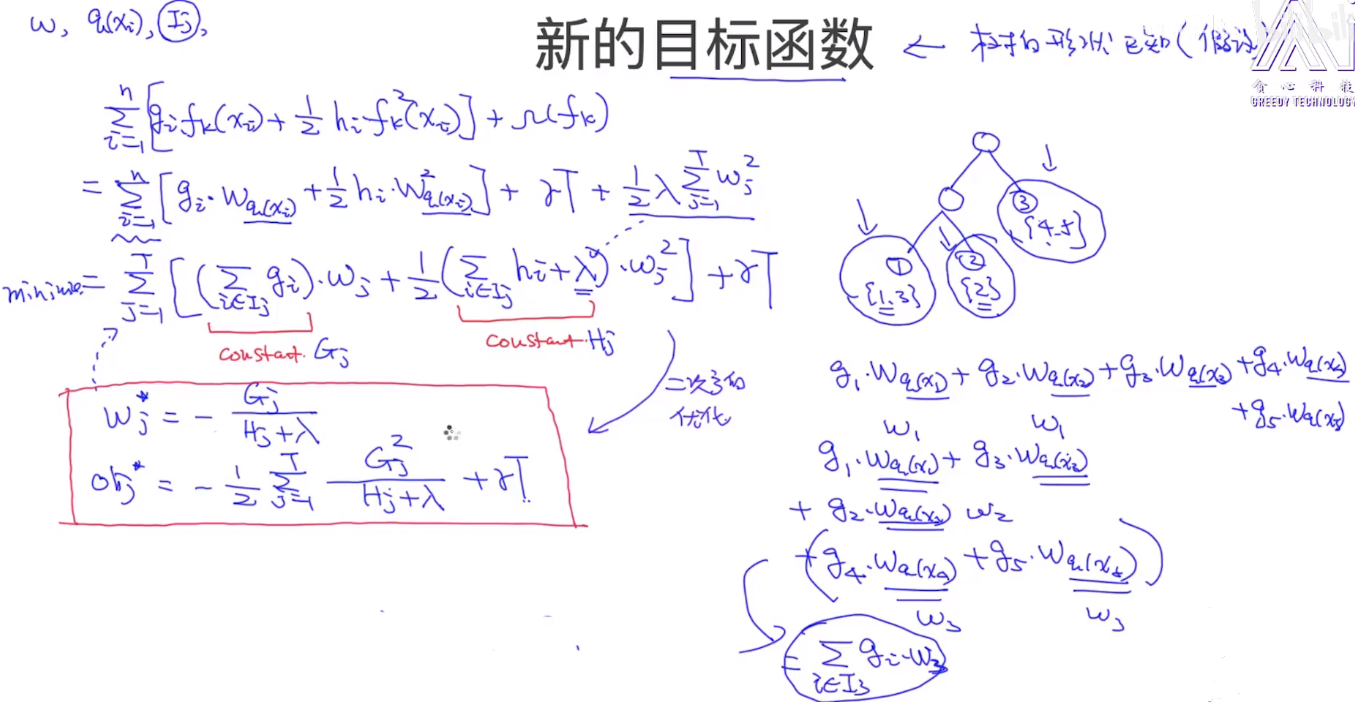 w, q(xᵢ), Iⱼ,
新的目标函数 ← 树的形状已知(假设)
贪心科技
GREEDY TECHNOLOGY
∑ᵢ₌₁ⁿ [gᵢfₖ(xᵢ) + ½ hᵢ·fₖ²(xᵢ)] + Ω(fₖ)
= ∑ᵢ₌₁ⁿ [gᵢ·w_q(xᵢ) + ½ hᵢ·w²_q(xᵢ)] + γT + ½ λ ∑ⱼ₌₁ᵀ wⱼ²
minimize = ∑ⱼ₌₁ᵀ [(∑_{i∈Iⱼ} gᵢ)·wⱼ + ½ (∑_{i∈Iⱼ} hᵢ + λ)·wⱼ²] + γT
constant. Gⱼ
constant. Hⱼ
二次多的
优化
wⱼ* = - Gⱼ / (Hⱼ+λ)
obj* = - ½ ∑ⱼ₌₁ᵀ Gⱼ² / (Hⱼ+λ) + γT
③
{4.5}
① ②
{1.3} {2}
g₁·w_q(x₁) + g₂·w_q(x₂) + g₃·w_q(x₃) + g₄·w_q(x₄)
+ g₅·w_q(x₅)
w₁ w₁
g₁·w_q(x₁) + g₃·w_q(x₃)
+ g₂·w_q(x₂) w₂
+ (g₄·w_q(x₄) + g₅·w_q(x₅))
w₃ w₃
= ∑_{i∈I₃} gᵢ·w₃